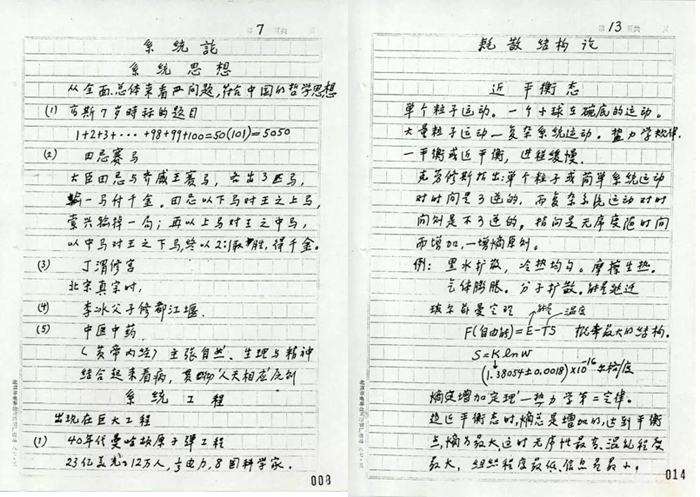 7
系统论
系统思想
从全面、总体来看问题,符合中国的哲学思想
(1) 高斯7岁时的题目
1+2+3+···+98+99+100=50(101)=5050
(2) 田忌赛马
大臣田忌与齐威王赛马,各出3匹马,
输一马付千金。田忌以下马对王之上马,
输掉一局;再以上马对王之中马,
以中马对王之下马,终以2:1取胜,得千金。
(3) 丁渭修宫
北京真空时,
(4) 李冰父子修都江堰
(5) 中医中药
《黄帝内经》主张自然、生理与精神
结合起来看病,"人天相应"原则
系统工程
出现在巨大工程
(1) 40年代曼哈顿原子弹工程
23亿美元,12万人,电力,8国科学家.
008
13
耗散结构论
近平衡态
单个粒子运动。一个小球在碗底的运动。
大量粒子运动—复杂系统运动。热力学规律.
—平衡或近平衡,进程缓慢.
克劳修斯指出:单个粒子或简单系统运动
对时间是可逆的,而复杂系统运动对时
间则是不可逆的,指向是无序度随时间
而增加,—增熵原则.
例:黑水扩散,冷热均匀。摩擦生热.
气体膨胀。分子扩散.
玻尔兹曼定理 温度
F(自由能)=E-TS 概率最大的结构.
S=KlnW
(1.38054±0.0018)×10⁻¹⁶尔格/度
熵度增加定理—热力学第二定律.
趋近平衡态时,熵总是增加的,达到平衡
点,熵为最大,这时无序性最高、混乱程度
最大,组织程度最低、信息量最小.
014